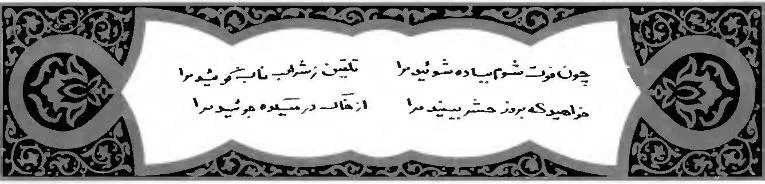 چون فوت شوم بباده شوئید مرا تلقین ز شراب ناب گوئید مرا
خواهید که بروز حشر بینید مرا از خاک در میکده جوئید مرا